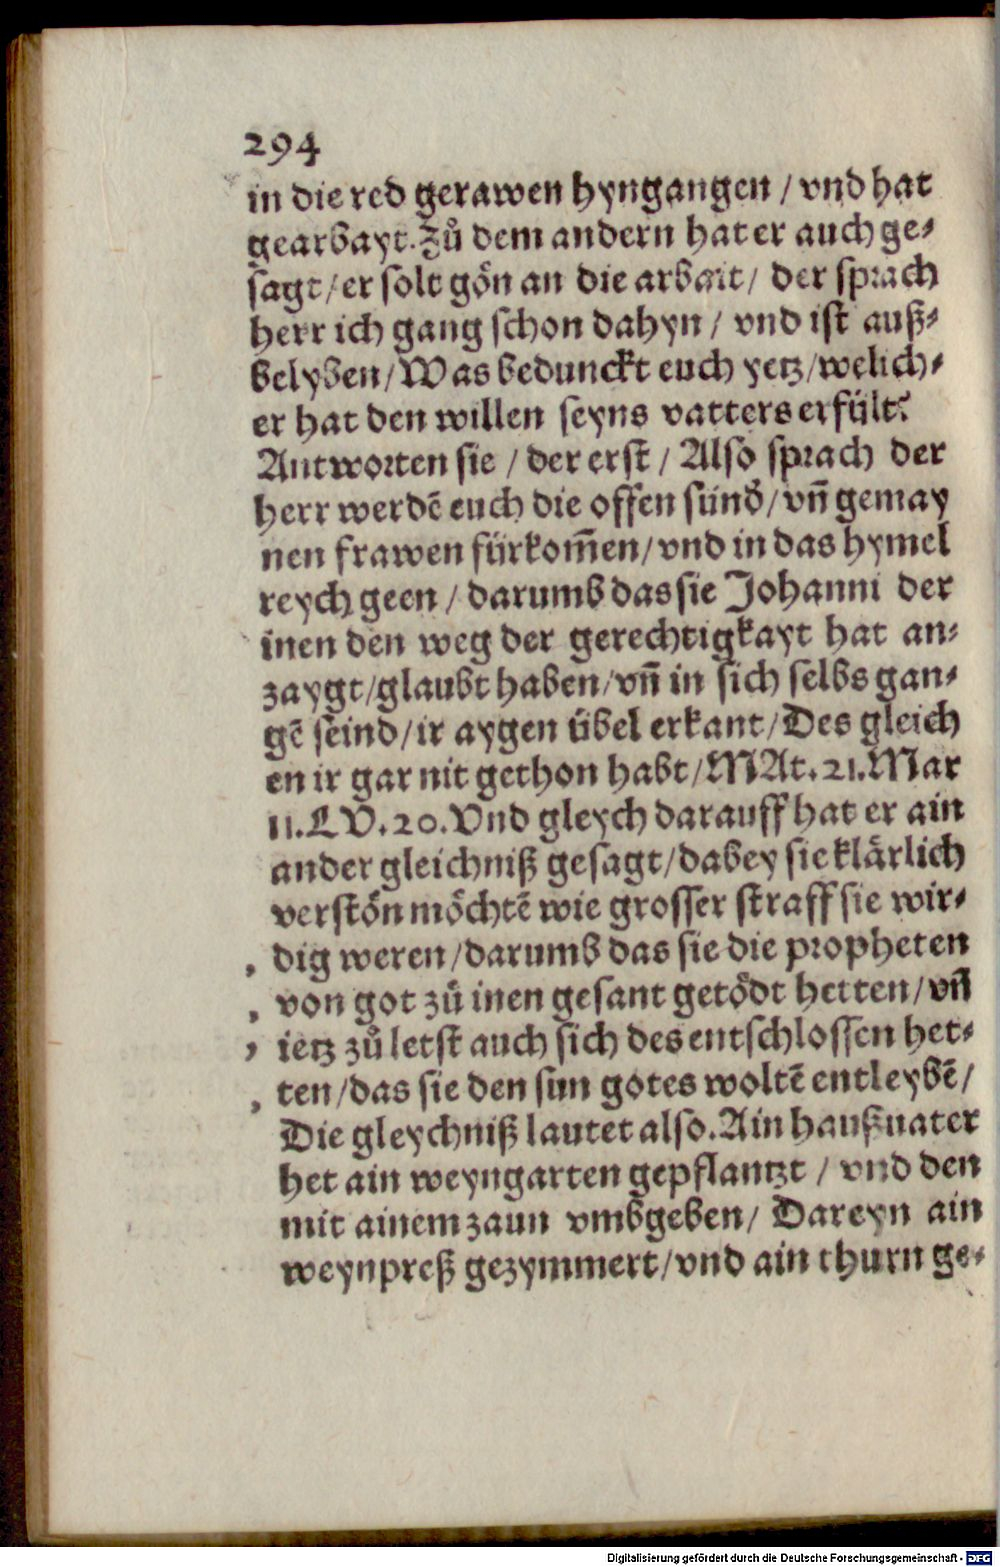 294
in die red gerawen hyngangen / vnd hat
gearbayt. Zů dem andern hat er auch ge⸗
sagt / er solt gön an die arbait / der sprach
herr ich gang schon dahyn / vnd ist auß⸗
belyben / Was bedunckt euch yetz / welich⸗
er hat den willen seyns vatters erfült?
Antworten sie / der erst / Also sprach der
herr werdē euch die offen sünd / vn̄ gemay
nen frawen fürkom̄en / vnd in das hymel
reych geen / darumb das sie Johanni der
inen den weg der gerechtigkayt hat an⸗
zaygt / glaubt haben / vn̄ in sich selbs gan⸗
gē seind / ir aygen übel erkant / Des gleich
en ir gar nit gethon habt / MAt. 21. Mar
11. LV. 20. Vnd gleych darauff hat er ain
ander gleichniß gesagt / dabey sie klärlich
verstön möchtē wie grosser straff sie wir⸗
dig weren / darumb das sie die propheten
von got zů inen gesant getödt hetten / vn̄
ietz zů letst auch sich des entschlossen het⸗
ten / das sie den sun gotes woltē entleybē /
Die gleychniß lautet also. Ain haußuater
het ain weyngarten gepflantzt / vnd den
mit ainem zaun vmbgeben / Dareyn ain
weynpreß gezymmert / vnd ain thurn ge⸗
Digitalisierung gefördert durch die Deutsche Forschungsgemeinschaft - DFG